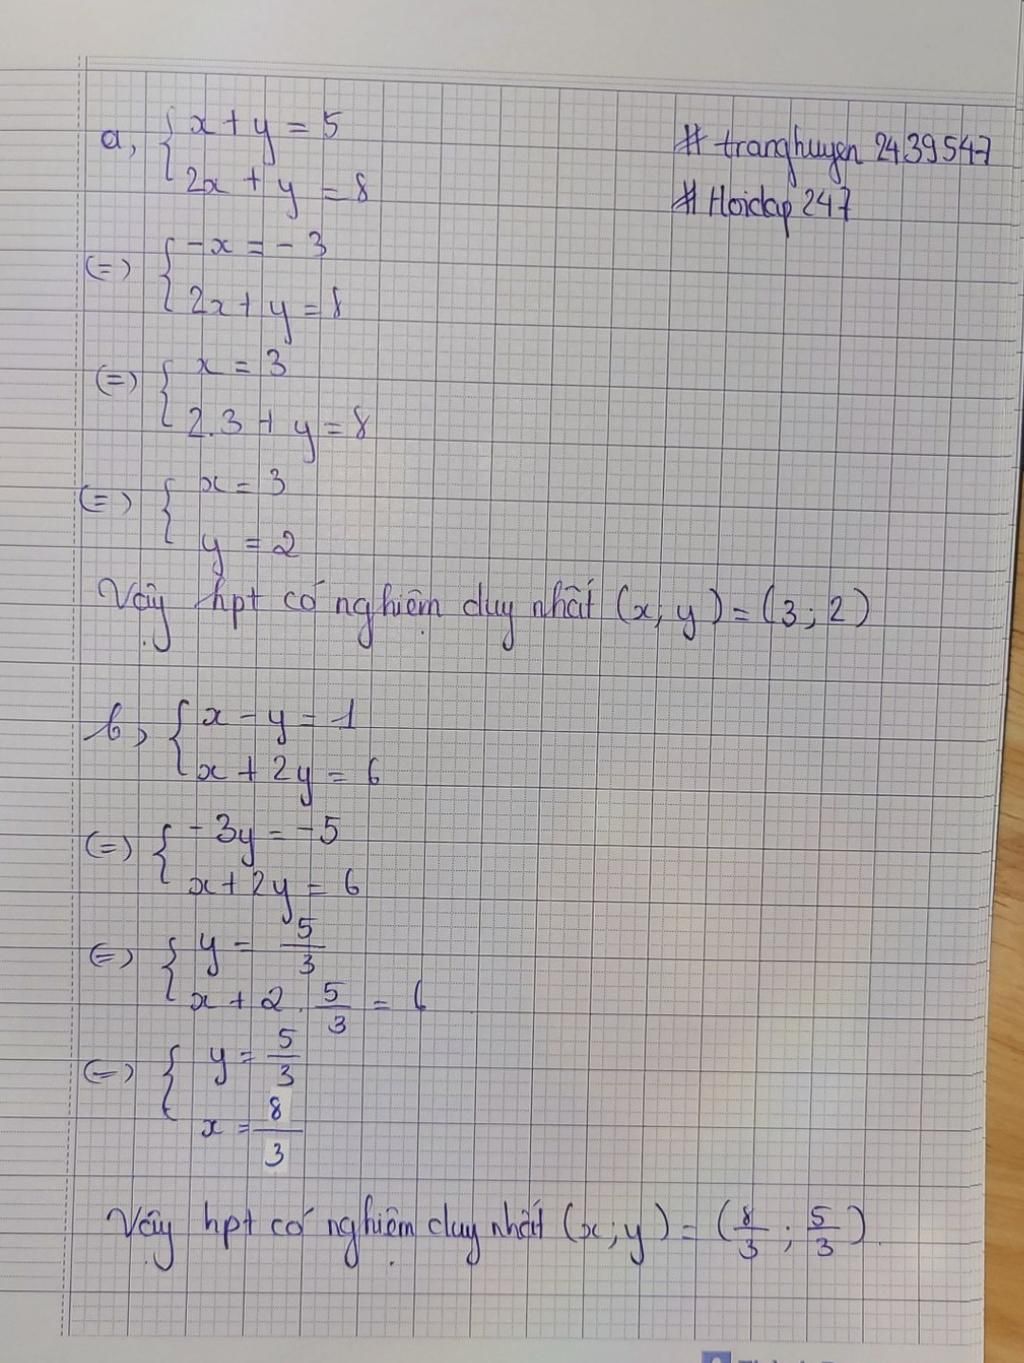 a, { x + y = 5
2x + y = 8
# tranghuyen 2439547
# Hoidap 247
(=) { -x = -3
2x + y = 8
(=) { x = 3
2.3 + y = 8
(=) { x = 3
y = 2
Vậy hpt có nghiệm duy nhất (x; y) = (3; 2)
b, { x - y = 1
x + 2y = 6
(=) { -3y = -5
x + 2y = 6
(=) { y = 5/3
x + 2 . 5/3 = 6
(=) { y = 5/3
x = 8/3
Vậy hpt có nghiệm duy nhất (x; y) = (8/3 ; 5/3).